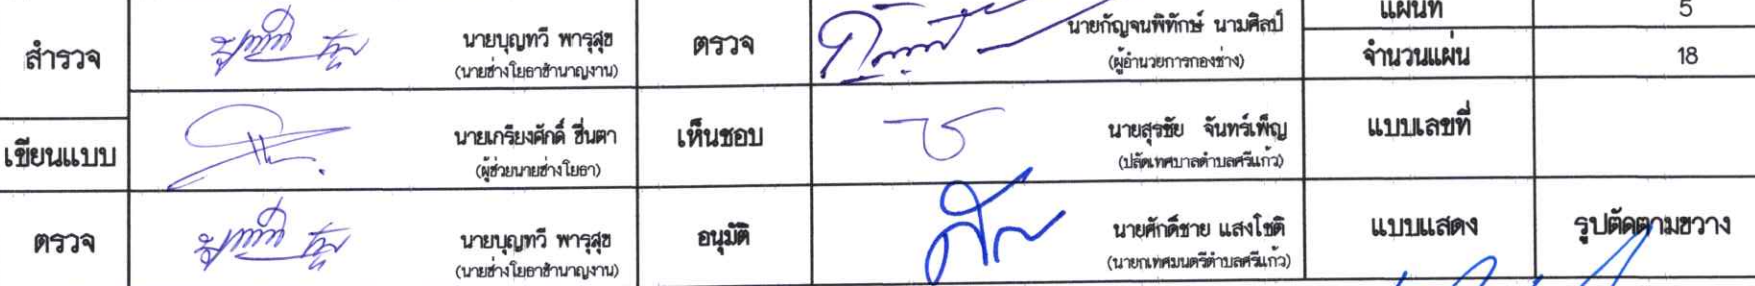 สำรวจ
นายบุญทวี พารุสุข
(นายช่างโยธาชำนาญงาน)
ตรวจ
นายกัญจนพิทักษ์ นามศิลป์
(ผู้อำนวยการกองช่าง)
แผ่นที่ 5
จำนวนแผ่น 18
เขียนแบบ
นายเกรียงศักดิ์ ฮื่นตา
(ผู้ช่วยนายช่างโยธา)
เห็นชอบ
นายสุรชัย จันทร์เพ็ญ
(ปลัดเทศบาลตำบลศรีแก้ว)
แบบเลขที่
ตรวจ
นายบุญทวี พารุสุข
(นายช่างโยธาชำนาญงาน)
อนุมัติ
นายศักดิ์ชาย แสงโชติ
(นายกเทศมนตรีตำบลศรีแก้ว)
แบบแสดง รูปตัดตามขวาง